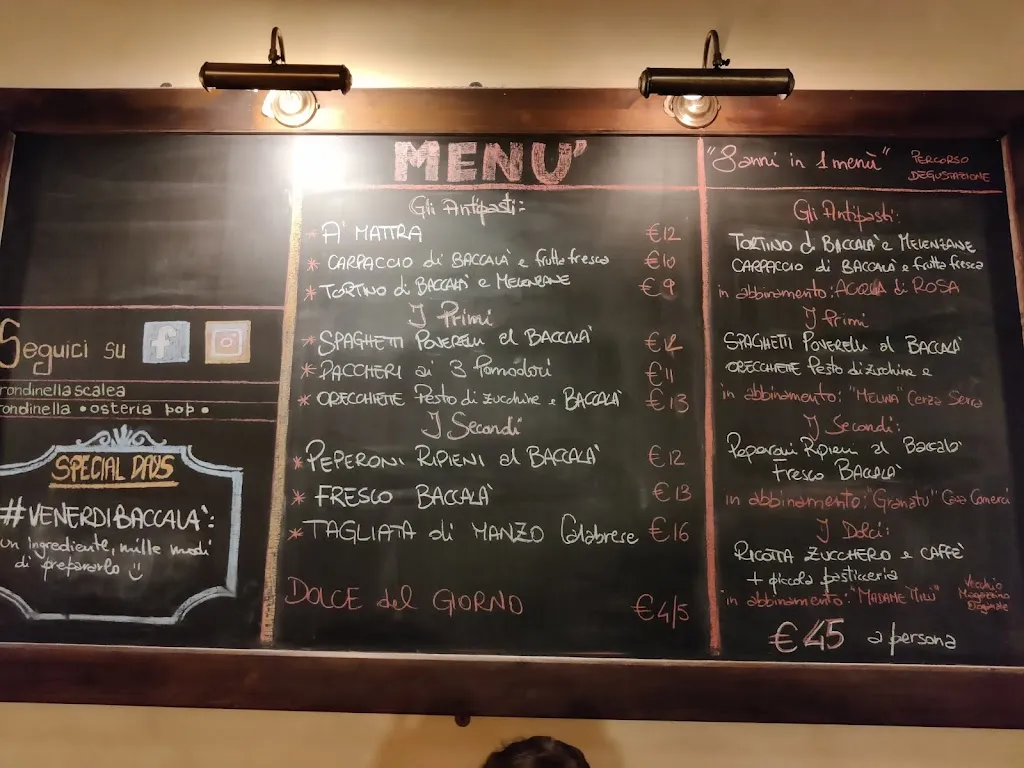 Seguici su
rondinellascalea
ondinella • osteria pop •
SPECIAL DAYS
#VENERDIBACCALÀ:
un ingrediente, mille modi
di prepararlo
MENU'
Gli Antipasti:
* A' MATTRA €12
* CARPACCIO di BACCALÀ e frutta fresca €10
* TORTINO di BACCALÀ e MELENZANE €9
I Primi
* SPAGHETTI POVERELLI al BACCALÀ €12
* PACCHERI ai 3 Pomodori €11
* ORECCHIETTE Pesto di zucchine e BACCALÀ €13
I Secondi
* PEPERONI RIPIENI al BACCALÀ €12
* FRESCO BACCALÀ €13
* TAGLIATA di MANZO Calabrese €16
DOLCE del GIORNO €4/5
"8 anni in 1 menù" PERCORSO
DEGUSTAZIONE
Gli Antipasti:
TORTINO di BACCALÀ e MELENZANE
CARPACCIO di BACCALÀ e frutta fresca
in abbinamento: ACQUA di ROSA
I Primi
SPAGHETTI POVERELLI al BACCALÀ
ORECCHIETTE Pesto di zucchine e
in abbinamento: "MELINA" Cerza Serra
I Secondi:
Peperoni Ripieni al Baccalà
FRESCO BACCALÀ
in abbinamento: "Granatu" Casa Comerci
I Dolci:
RICOTTA ZUCCHERO e CAFFÈ
+ piccola pasticceria
in abbinamento: "MADAME MILÙ" Vecchio
Magazzino
Doganale
€45 a persona